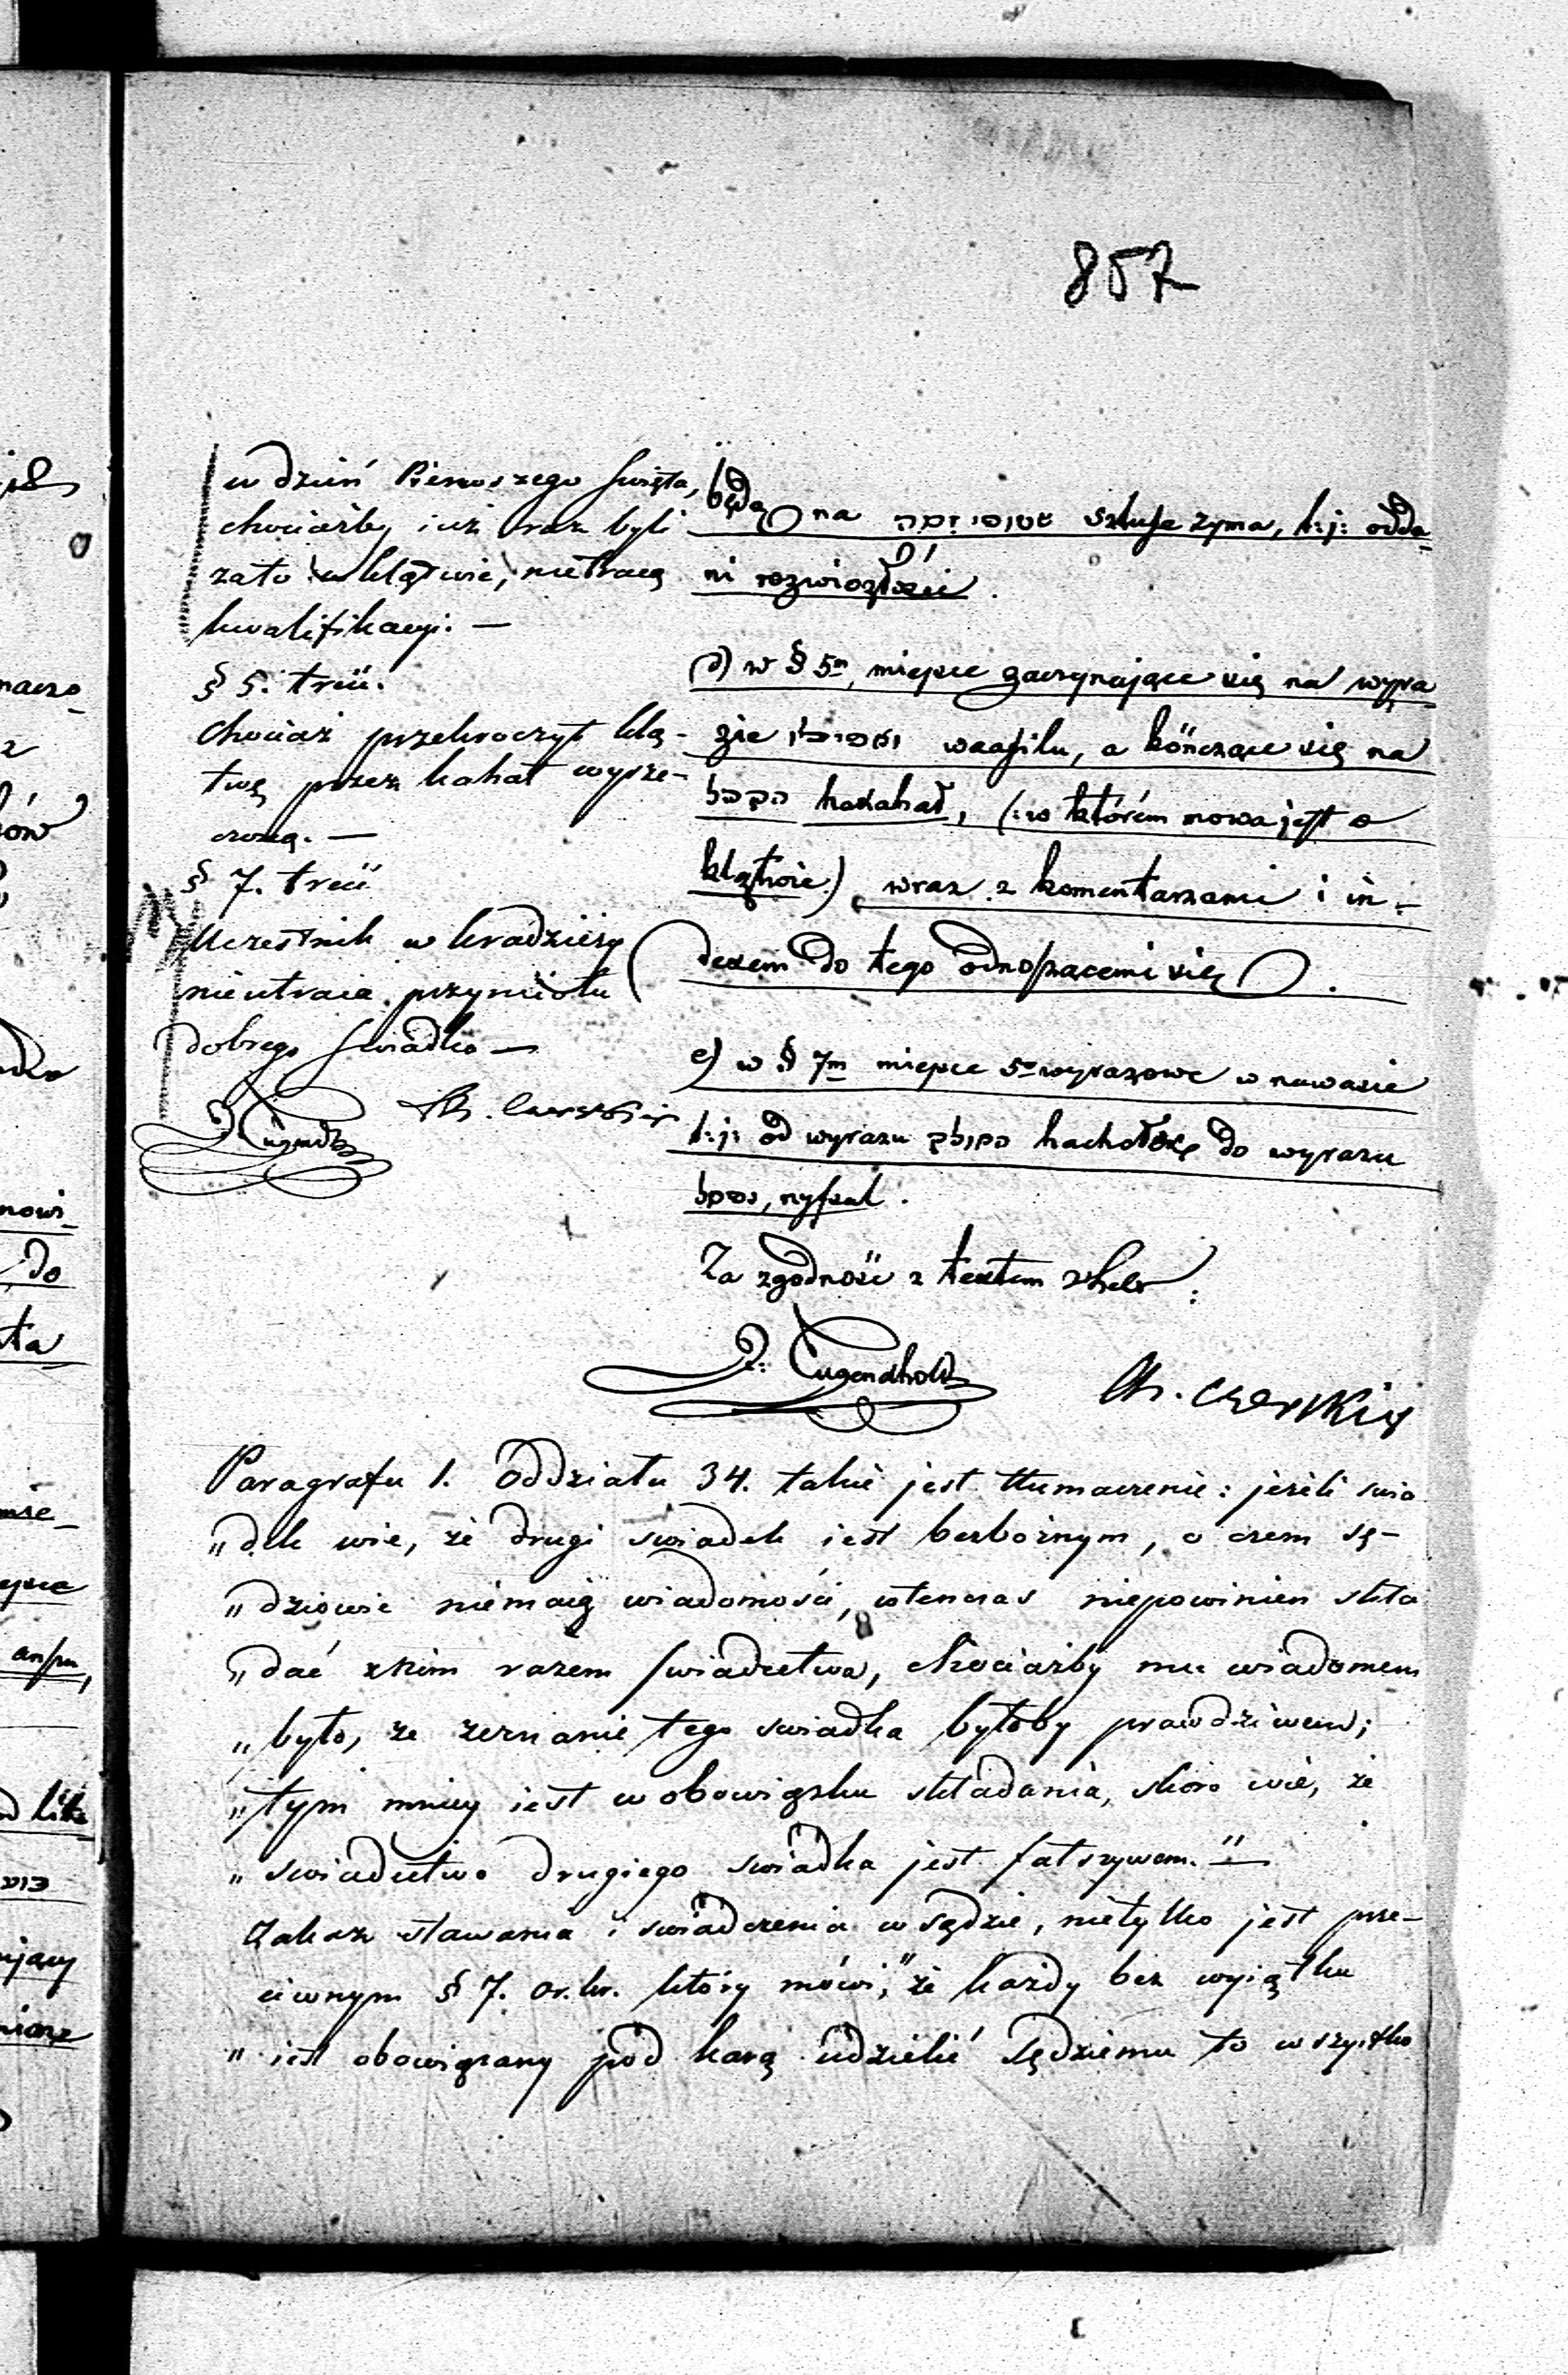 857
w dzień Pierwszego święta,
chociażby już raz byli
zato w klątwie, nietracą
kwalifikacyi. —
§ 5. treść.
Chociaż przekroczył klą-
twę przez kahał wyrze-
czoną. —
§ 7. treść
Uczestnik w kradzieży
nieutraca przymiotu
dobrego świadka —
J. Tugendh
będą na שטופי זמה sztufe zyma, t:j: odda-
ni rozwiozłości.
d) w § 5m, miejsce zaczynające się na wyra
zie ואפילו waafilu, a kończące się na
הקהל hakahał, (:w którém mowa jest o
klątwie) wraz z komentarzami i in-
dexem do tego odnoszącemi się.
e) w § 7m miejsce 5o wyrazowe w nawiasie
t:j: od wyrazu החולק hacholek do wyrazu
נפסל, nyfsal.
Za zgodność z textem
J: Tugendhold
Paragrafu 1. Oddziału 34. takie jest tłumaczenie: jeżeli świa
„dek wie, że drugi swiadek jest bezbożnym, o czem sę-
„dziowie niemaią wiadomości, wtenczas niepowinien skła
„dać z nim razem świadectwa, chociażby mu wiadomem
„było, że zeznanie tego swiadka byłoby prawdziwem;
„tym mniej jest w obowiązku składania, skoro wie, że
„swiadectwo drugiego swiadka jest fałszywem." —
Zakaz stawania i swiadczenia w sądzie, nietylko jest prze-
ciwnym § 7. or. kr. który mówi, „że każdy bez wyiątku
„iest obowiązany pod karą udzielić Sędziemu to wszystko